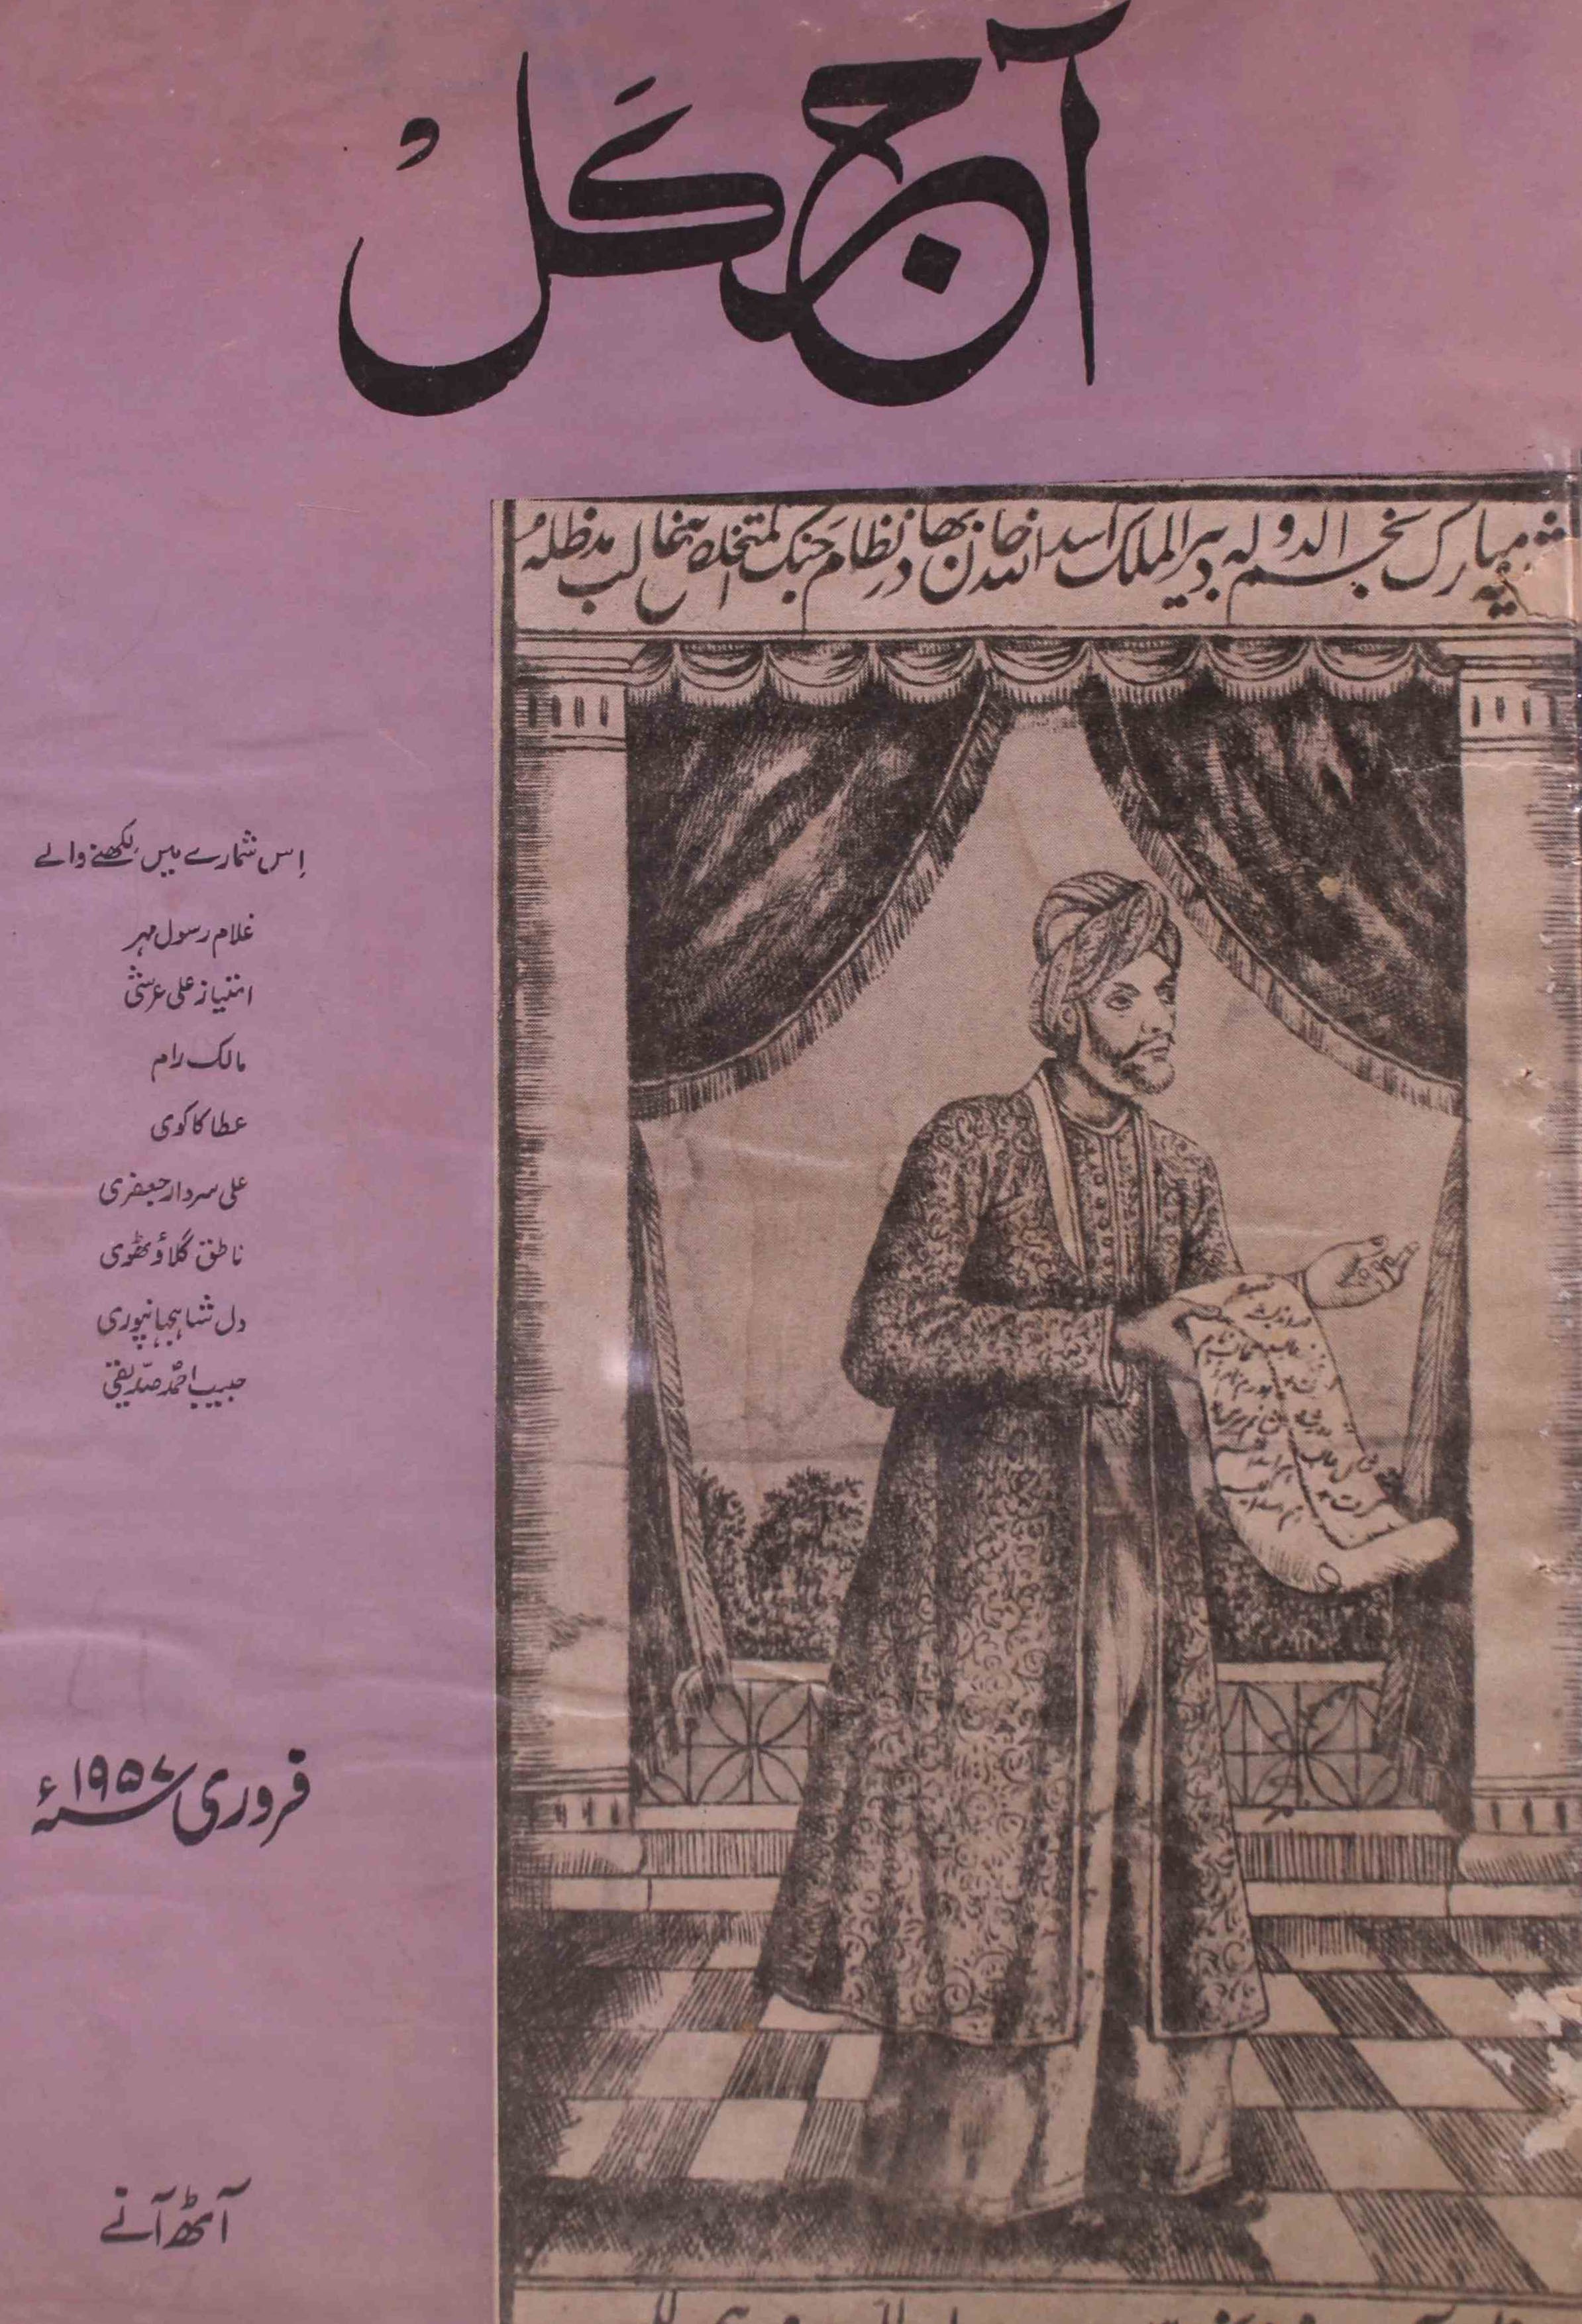 آج کل
شبیہ مبارک نجم الدولہ دبیر الملک اسد اللہ خان بھادر نظام جنگ المتخلص بغالب مدظلہ
اِس شمارے میں لکھنے والے
غلام رسول مہر
امتیاز علی عرشی
مالک رام
عطا کاکوی
علی سردار جعفری
ناطق گلاؤٹھوی
دل شاہجہانپوری
حبیب احمد صدیقی
فروری ۱۹۵۷ء
آٹھ آنے